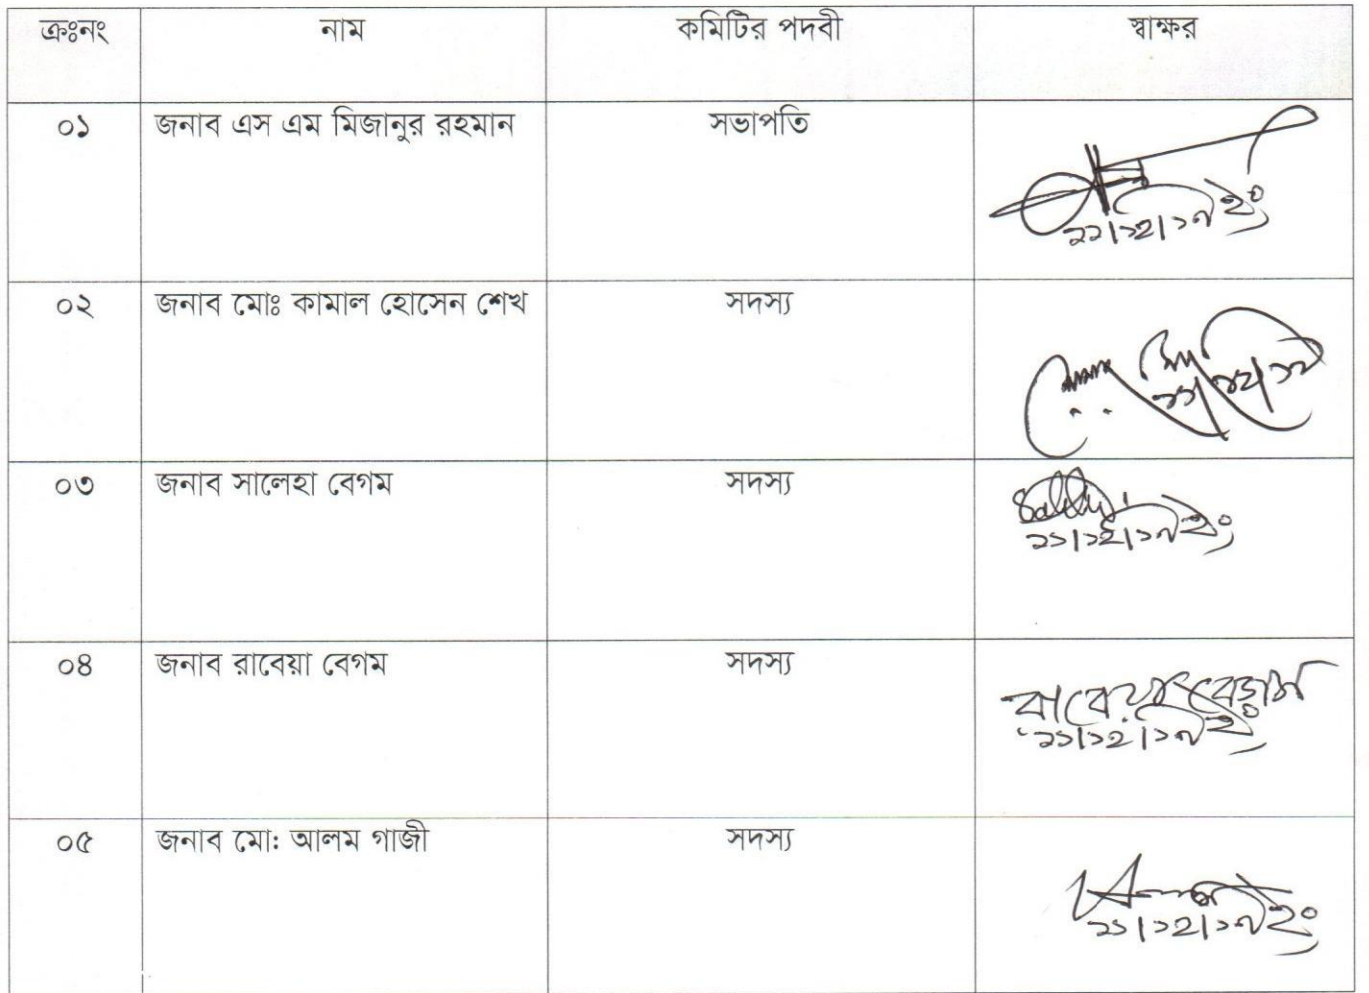 ক্রঃনং নাম কমিটির পদবী স্বাক্ষর
০১ জনাব এস এম মিজানুর রহমান সভাপতি
২১/১২/১৭ইং
০২ জনাব মোঃ কামাল হোসেন শেখ সদস্য
০৩ জনাব সালেহা বেগম সদস্য
২১/১২/১৭ইং
০৪ জনাব রাবেয়া বেগম সদস্য
রাবেয়া বেগম
২১/১২/১৭ইং
০৫ জনাব মো: আলম গাজী সদস্য
২১/১২/১৭ইং